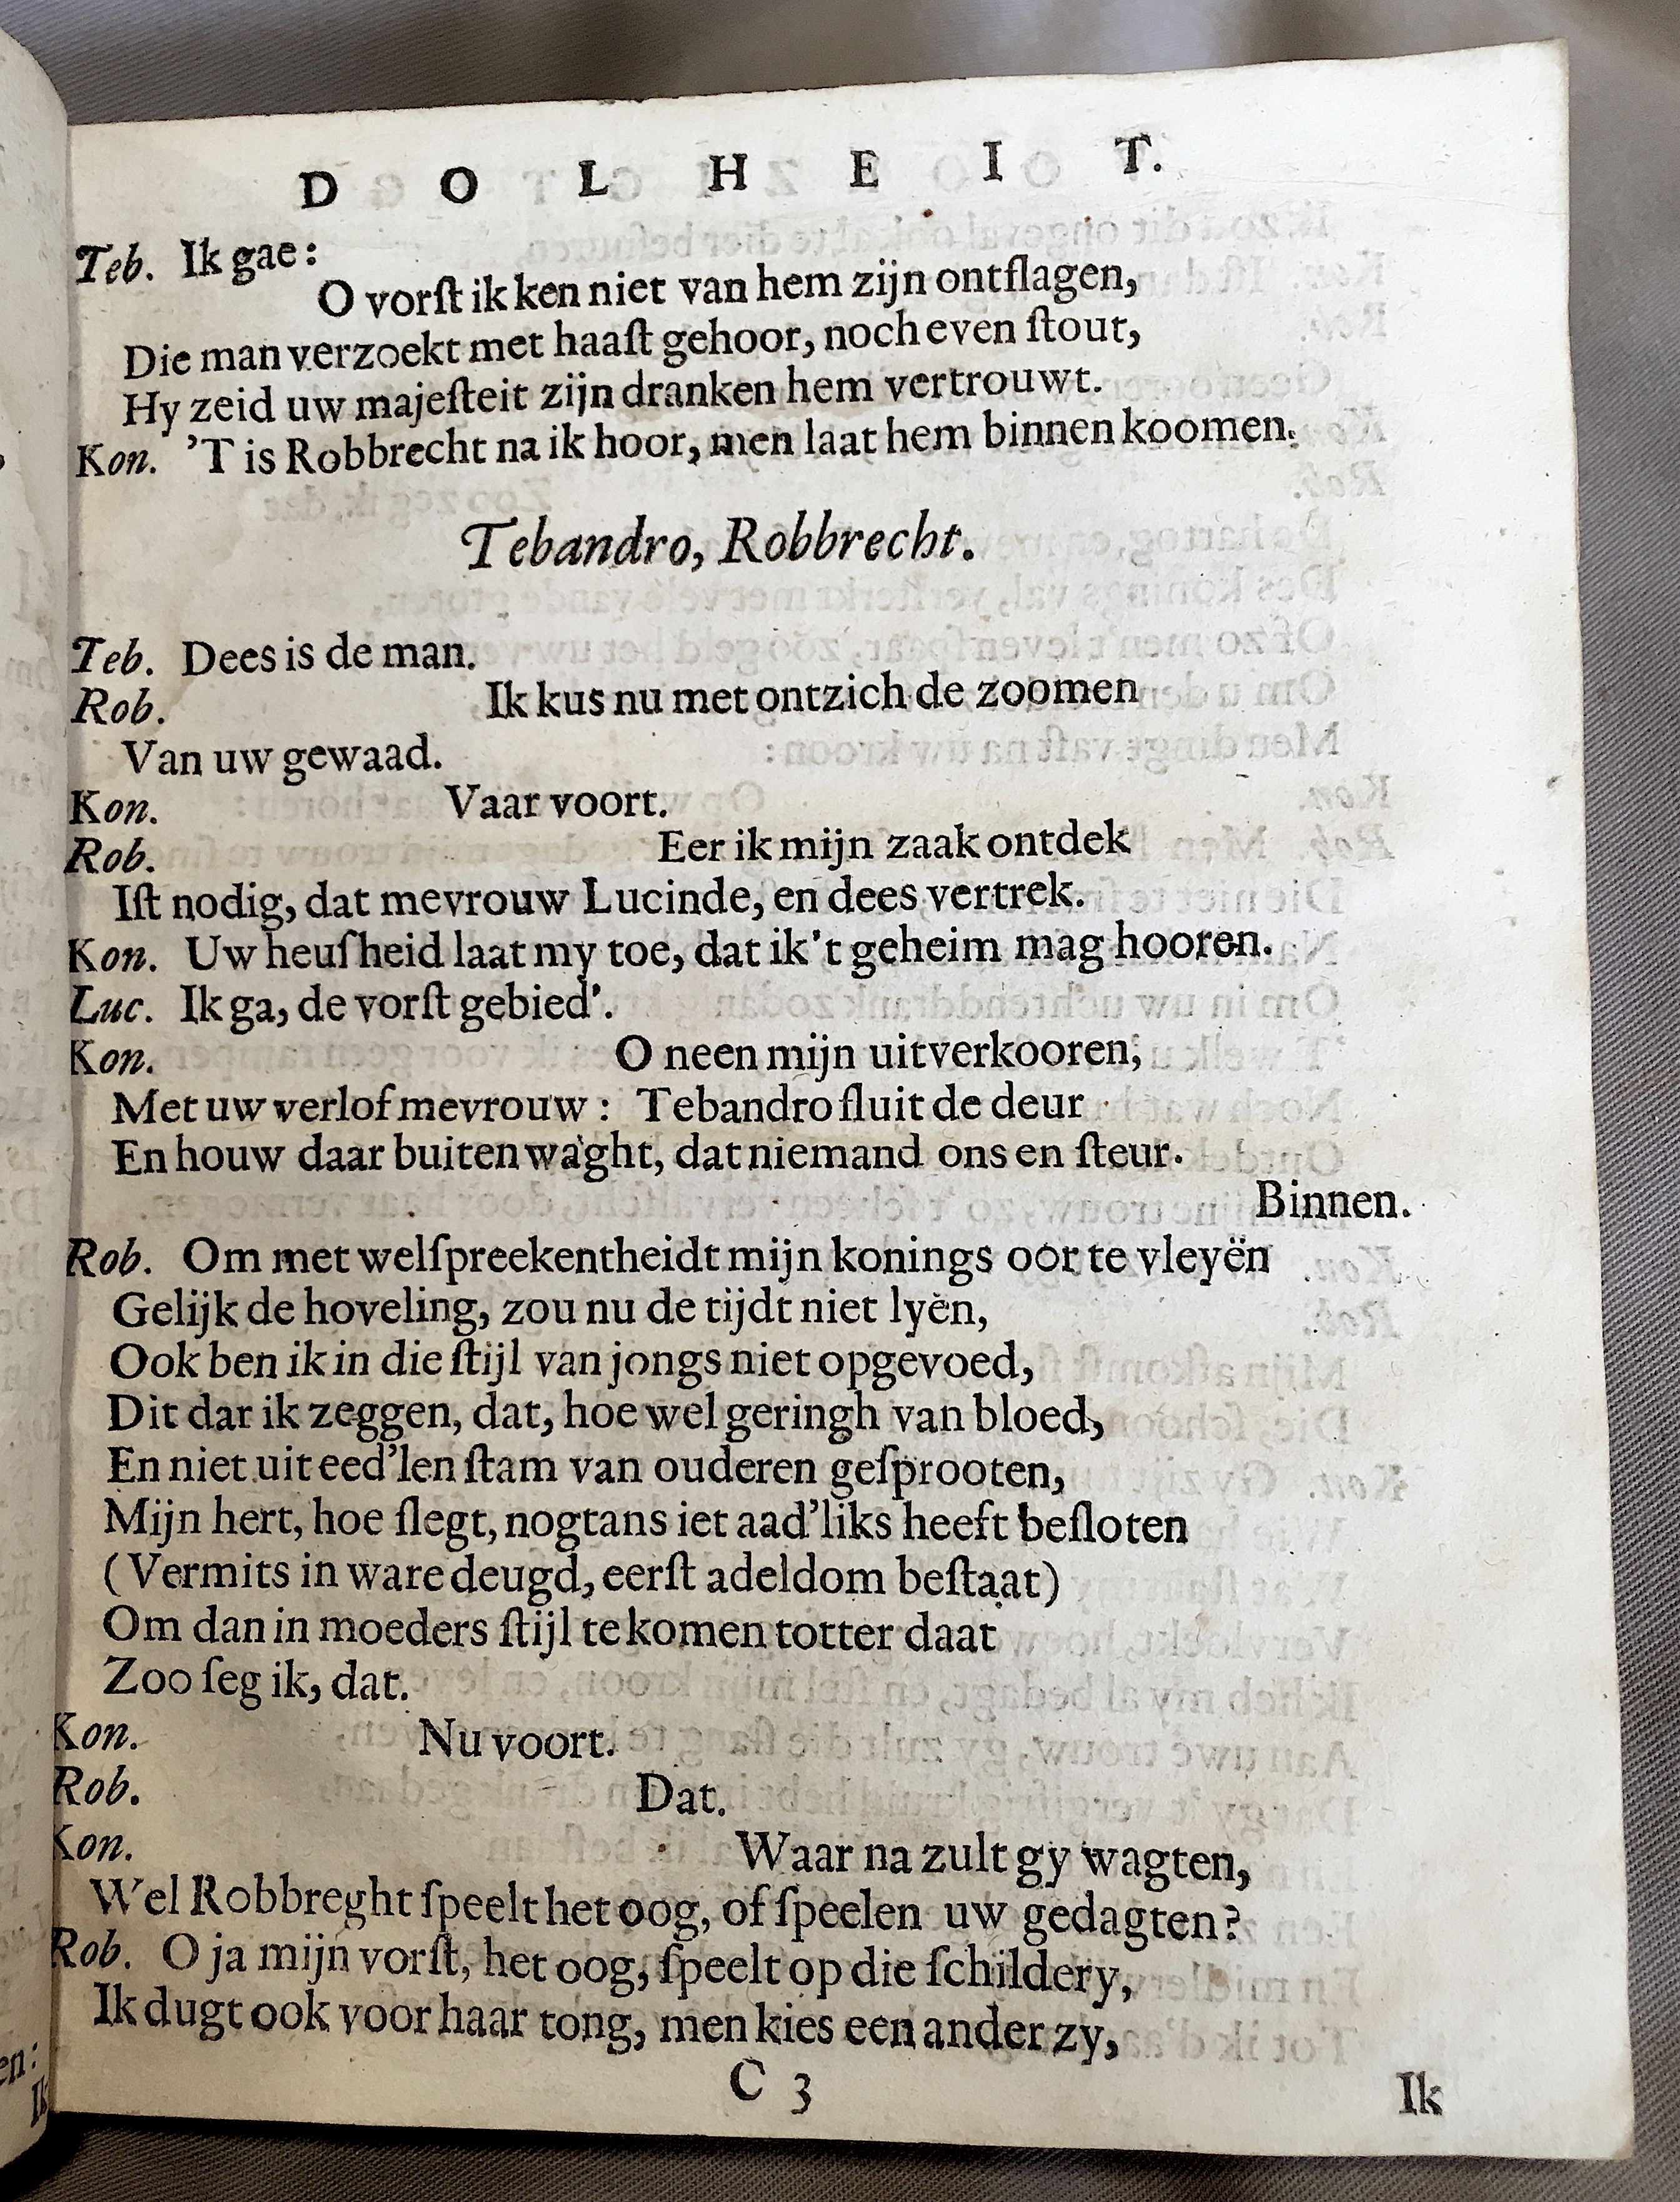 D O L H E I T.
Teb. Ik gae:
O vorſt ik ken niet van hem zijn ontſlagen,
Die man verzoekt met haaſt gehoor, noch even ſtout,
Hy zeid uw majeſteit zijn dranken hem vertrouwt.
Kon. 'T is Robbrecht na ik hoor, men laat hem binnen koomen.
Tebandro, Robbrecht.
Teb. Dees is de man.
Rob. Ik kus nu met ontzich de zoomen
Van uw gewaad.
Kon. Vaar voort.
Rob. Eer ik mijn zaak ontdek
Iſt nodig, dat mevrouw Lucinde, en dees vertrek.
Kon. Uw heuſheid laat my toe, dat ik 't geheim mag hooren.
Luc. Ik ga, de vorſt gebied'.
Kon. O neen mijn uitverkooren,
Met uw verlof mevrouw: Tebandro ſluit de deur
En houw daar buiten waght, dat niemand ons en ſteur.
Binnen.
Rob. Om met welſpreekentheidt mijn konings oor te vleyën
Gelijk de hoveling, zou nu de tijdt niet lyën,
Ook ben ik in die ſtijl van jongs niet opgevoed,
Dit dar ik zeggen, dat, hoe wel geringh van bloed,
En niet uit eed'len ſtam van ouderen geſprooten,
Mijn hert, hoe ſlegt, nogtans iet aad'liks heeft beſloten
(Vermits in ware deugd, eerſt adeldom beſtaat)
Om dan in moeders ſtijl te komen totter daat
Zoo ſeg ik, dat.
Kon. Nu voort.
Rob. Dat.
Kon. Waar na zult gy wagten,
Wel Robbreght ſpeelt het oog, of ſpeelen uw gedagten?
Rob. O ja mijn vorſt, het oog, ſpeelt op die ſchildery,
Ik dugt ook voor haar tong, men kies een ander zy,
C 3
Ik